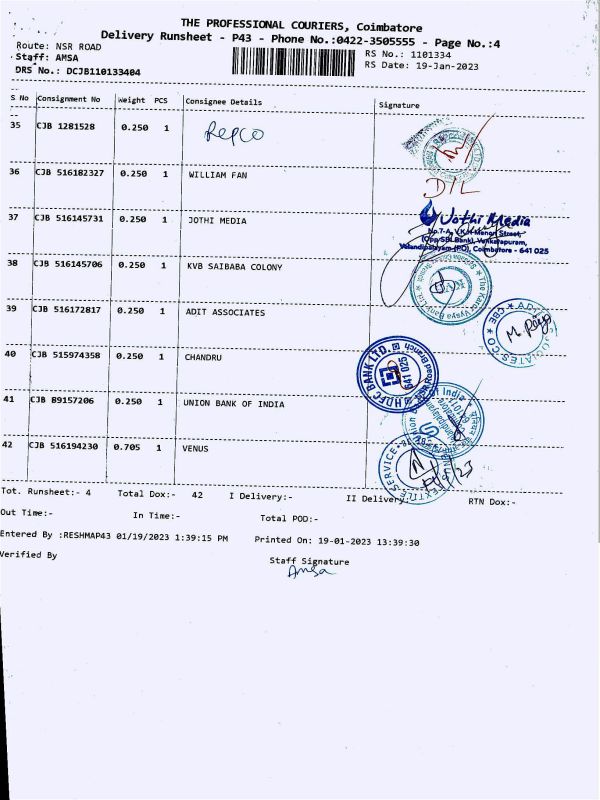 THE PROFESSIONAL COURIERS, Coimbatore
Delivery Runsheet - P43 - Phone No.:0422-3505555 - Page No.:4
Route: NSR ROAD
RS No.: 1101334
Staff: AMSA
RS Date: 19-Jan-2023
DRS No.: DCJB110133404
S No Consignment No Weight PCS Consignee Details Signature
35 CJB 1281528 0.250 1 Repco
36 CJB 516182327 0.250 1 WILLIAM FAN D/L
37 CJB 516145731 0.250 1 JOTHI MEDIA
Jothi Media
No.7-A, V.K.K Menon Street,
(Opp SBI Bank), Venkatapuram,
Velandipalayam (PO), Coimbatore - 641 025
38 CJB 516145706 0.250 1 KVB SAIBABA COLONY
The Karur Vysya Bank Ltd
39 CJB 516172817 0.250 1 ADIT ASSOCIATES
CBE
40 CJB 515974358 0.250 1 CHANDRU
HDFC BANK LTD. NSR Road Branch
641 025
41 CJB 89157206 0.250 1 UNION BANK OF INDIA
42 CJB 516194230 0.705 1 VENUS
TEXTILE SERVICE
Tot. Runsheet:- 4 Total Dox:- 42 I Delivery:- II Delivery:- RTN Dox:-
Out Time:- In Time:- Total POD:-
Entered By :RESHMAP43 01/19/2023 1:39:15 PM Printed On: 19-01-2023 13:39:30
Verified By
Staff Signature
Amsa